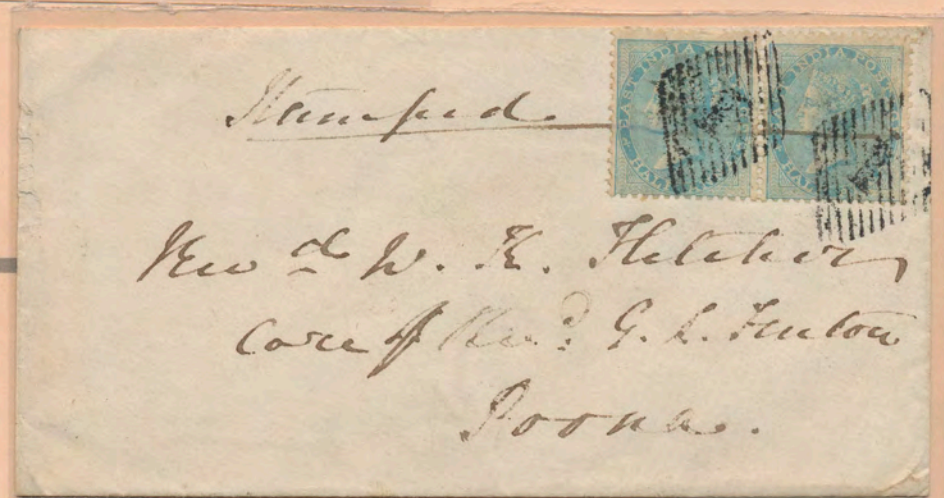 Stamped
EAST INDIA POST
HALF
INDIA POST
HALF
Revd W. K. Fletcher
Care of Revd. G. L. Fenton
Poona.